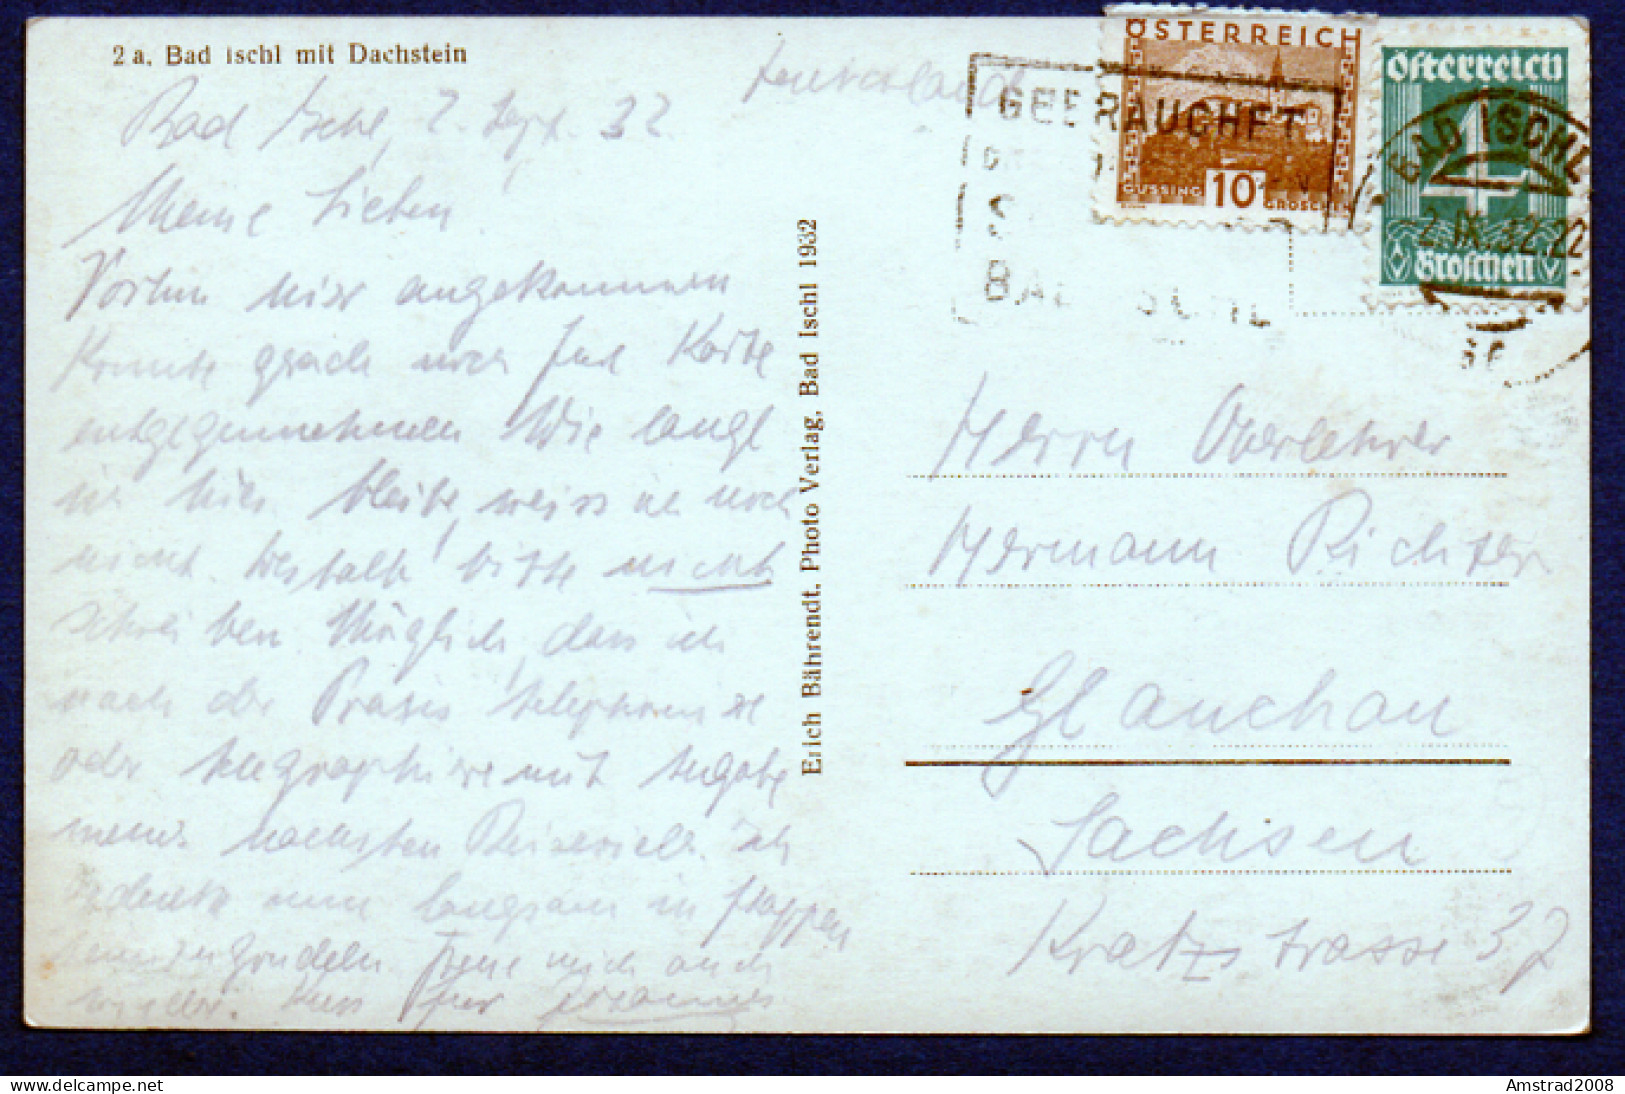 2 a. Bad Ischl mit Dachstein
Bad Ischl, 2. Sept. 32
Meine Lieben
Vorhin hier angekommen
Konnte grade noch Eure Karte
entgegennehmen Wie lange
ich hier bleibe, weiss ich noch
nicht. Deshalb bitte nicht
schreiben. Möglich, dass ich
nach der Praxis telephoniere
oder telegraphiere mit Angabe
meines nächsten Reiseziels. Ich
gedenke nun langsam in Etappen
Freue mich auch
Kuss Euer Johannes
Erich Bährendt, Photo Verlag, Bad Ischl 1932
Deutschland
ÖSTERREICH
GÜSSING 10 GROSCHEN
Österreich
4
Groschen
GEBRAUCHET
BAD ISCHL
BAD ISCHL
2.IX.32.22
Herrn Oberlehrer
Hermann Richter
Glauchau
Sachsen
Kratzstrasse 37
Amstrad2008